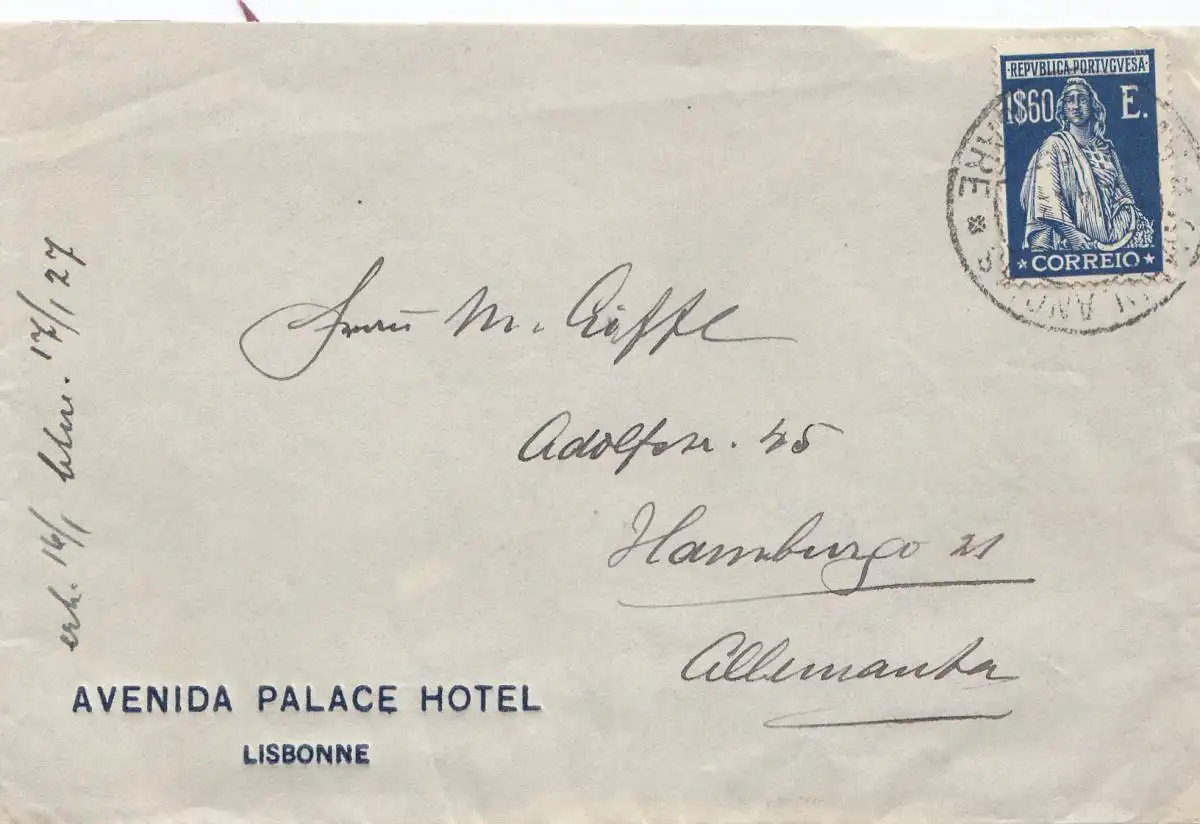 ·REPVBLICA PORTVGVESA·
1$60 E.
*CORREIO*
Frau M.
Adolfstr. 45
Hamburgo 21
Allemanha
erh. 16/1 17/1 27
AVENIDA PALACE HOTEL
LISBONNE